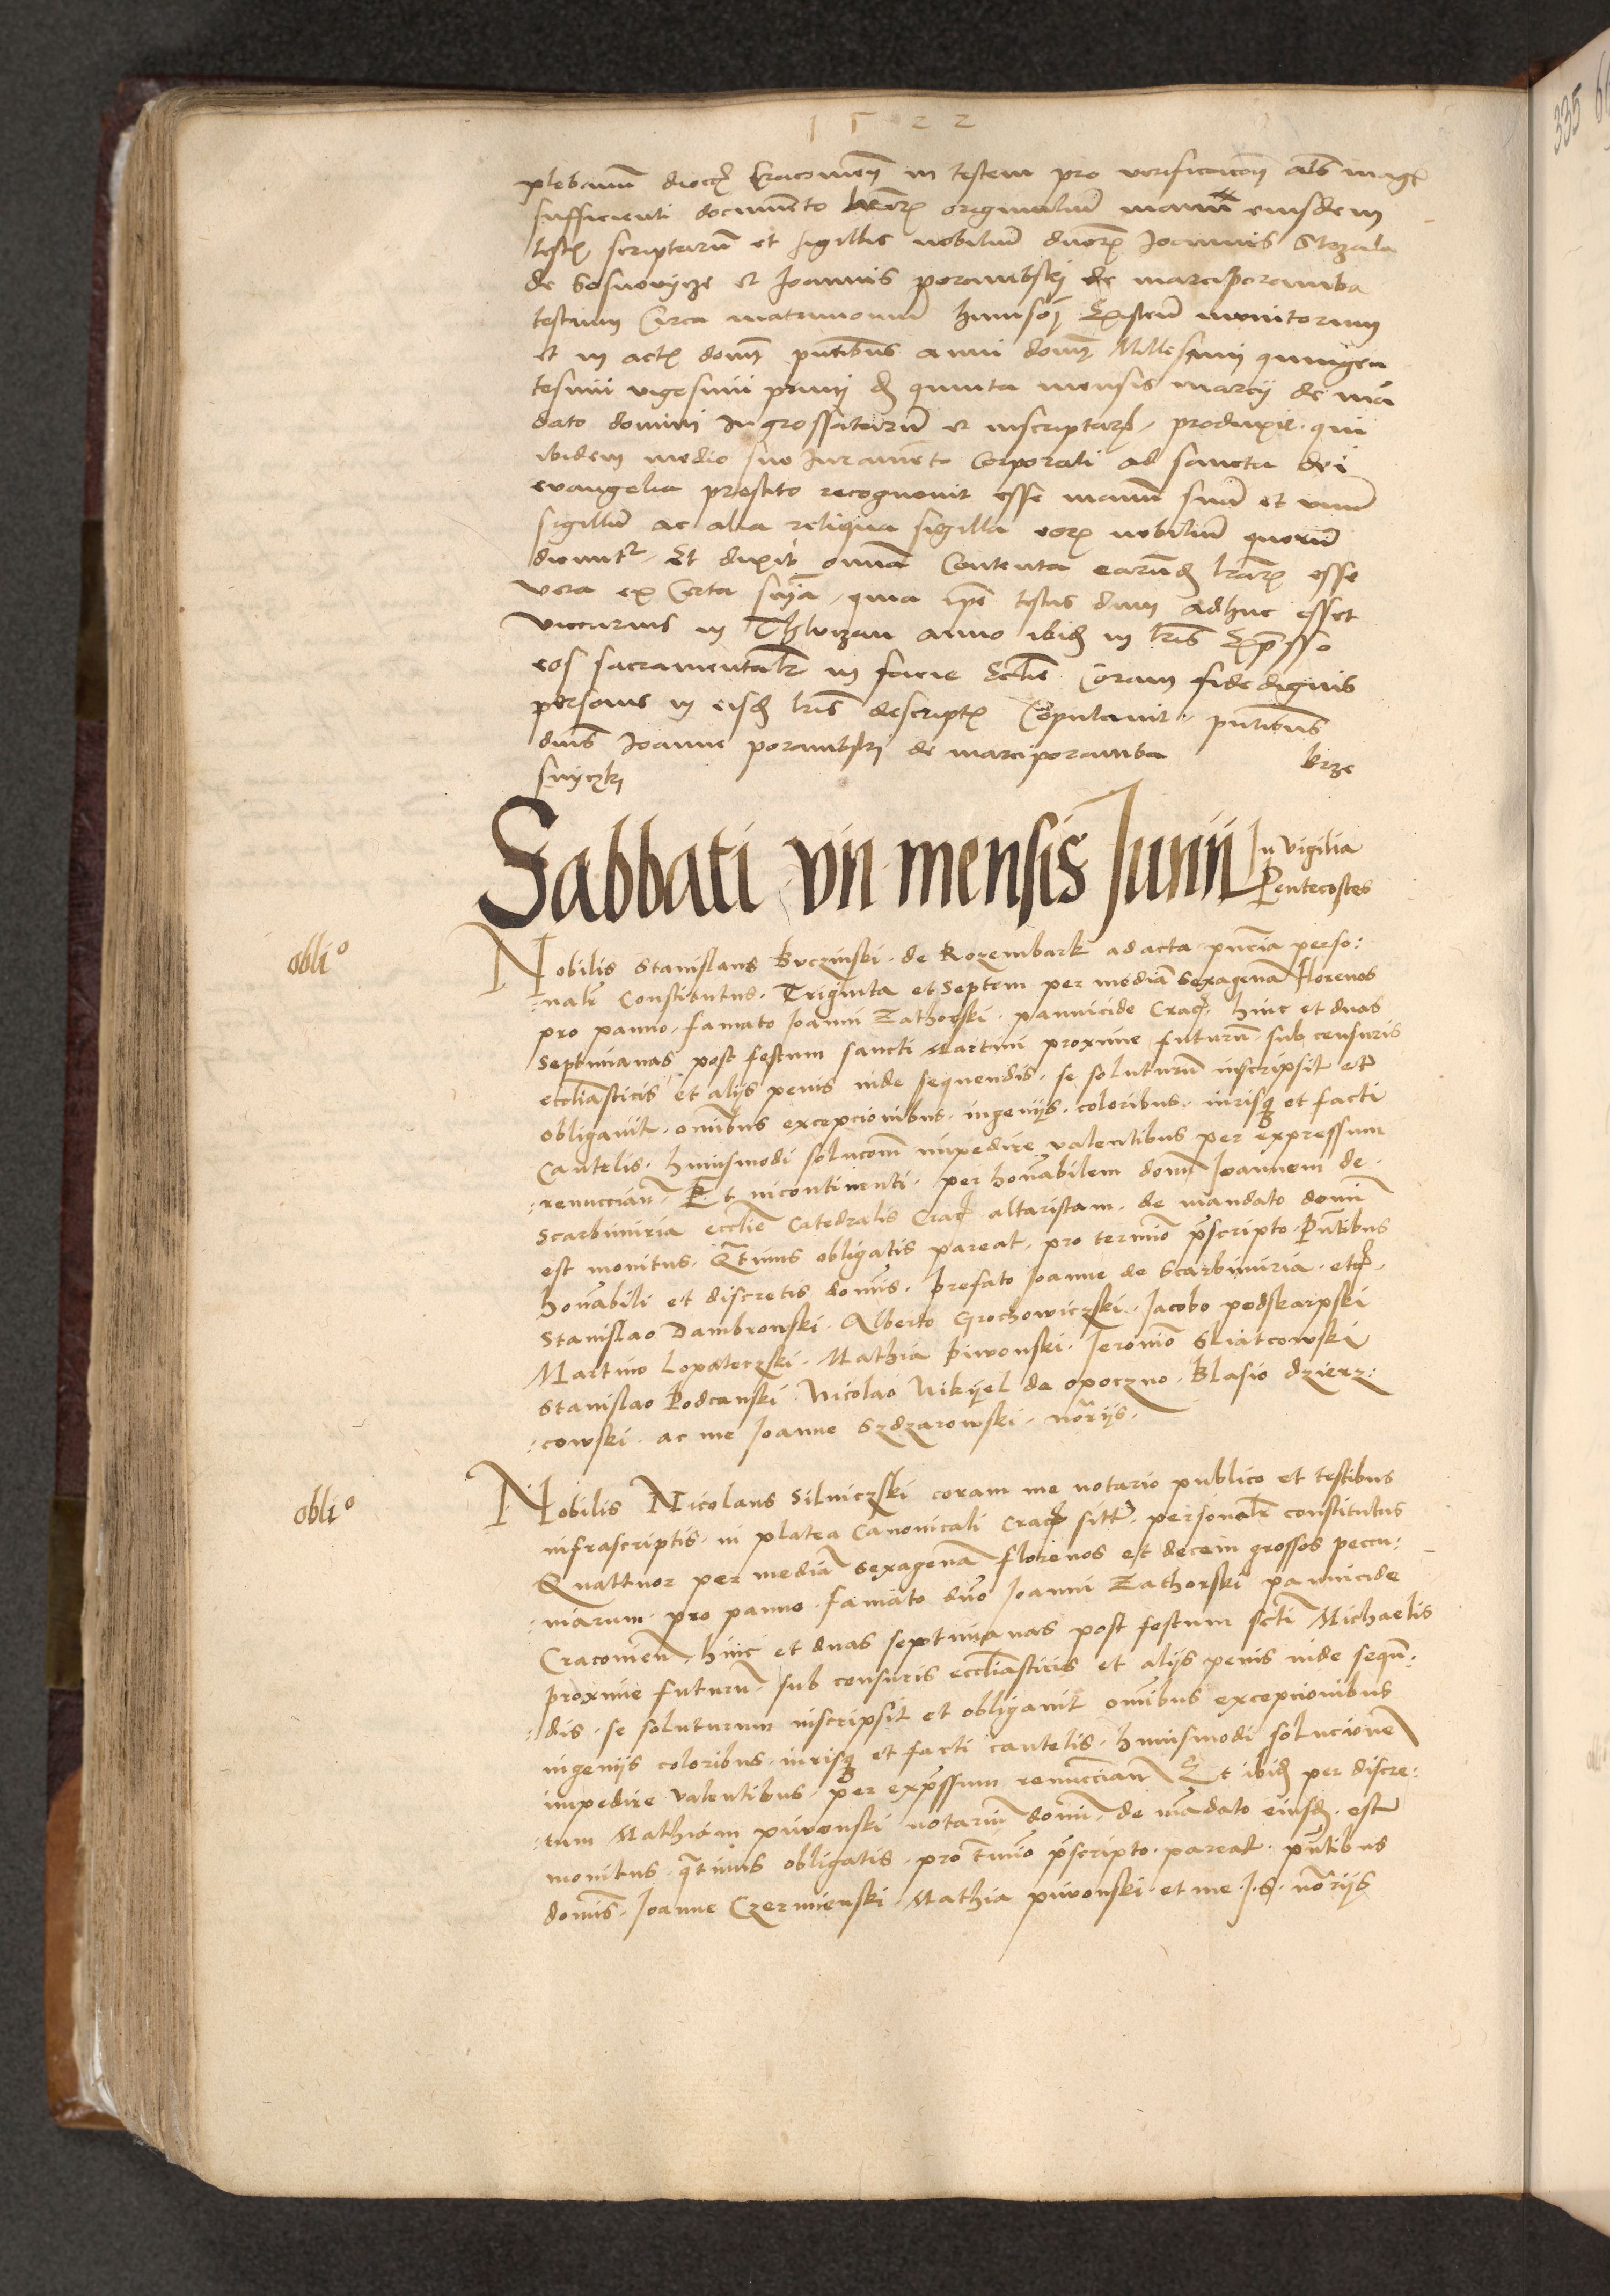 1522
plebanum dioc̃ Cracovien̄ in testem pro verificacōn̄ alś mag̃
sufficienti documento lrarꝝ originalium manu eiusdem
test̃ scriptarū et sigillis nobiliū dnorꝝ Joannis Strzala
de Sosnovycze et Joannis porambskj de marciporamba
testium Circa matrimoniū huiusm̄oi Existen̄ monitorum
et in act̃ domī pn̄tibus anni domī Millesimi quingen
tesimi vigesimi primj d̄ quinta mensis marcij de mā
dato domini Ingrossatarū et inscriptarꝝ produxit. qui
ibidem medio suo Juramēto Corporali ad sancta dei
evangelia prestito recognovit esse manū suā et unū
sigillū ac alia reliqua sigilla eorꝝ nobiliū quorū
dicunt᷑ Et dixit omnia Contenta earunđ lrarꝝ esse
vera ex Certa sc̄ia, quia ip̄e testis dum adhuc esset
viccarius in anno ibiđ in lrīs Exp̄sso
eos sacramentalr̄ in facie Ecclīe Coram fidedignis
personis in eisđ lrīs descript̃ Copulavit. pn̄tibus
dnīs Joanne porambski de marciporamba brze
snyczki
Sabbati vii mensis Junii In vigilia
Pentecostes
obliᵒ
Nobilis Stanislaus Buczinski. de Rozembark ad acta pn̄cia perso:
:nalr̄ Constitutus. Triginta et septem per mediā sexagenā florenos
pro panno. famato Joanni Zathorski. pannicide Crac̃. hinc et duas
septimanas post festum sancti Martini proxime futurū. sub censuris
eccl̄iasticis et alijs penis inde sequendis. se soluturū inscripsit et
obligavit. omībus excepcionibus. ingenijs. coloribus. iurisq̨ et facti
Cautelis. huiusmodi solucōm̄ impedire valentibus per expressum
:renuccian̄. Et incontinenti. per honorabilem domī Joannem de.
Scarbimiria eccl̄ie Catedralis Crac̃ altaristam. de mandato domī
est monitus. Q̄tinus obligatis pareat. pro termīo p̄scripto. Pn̄tibus
honorabili et discretis domīs. prefato Joanne de Scarbimiria. etc̃.
Stanislao Dambrowski. Alberto Grochowiczski. Jacobo podskarpski
Martino Lopateczski. Mathia Piwonski. Jeronimo Sliatcowski
Stanislao Podcanski Nicolao Nikyel de opoczno. Blasio dzierz:
:cowski. ac me Joanne Szdzarowski. notrijs.
obliᵒ
Nobilis Nicolaus Silniczski coram me notario publico et testibus
infrascriptis. in platea Canonicali Crac̃ sitt̄. personalr̄ constitutus
Quattuor per mediā sexagenā florenos et decem grossos peccu:
:niarum. pro panno. famato dn̄o Joanni Zathorski pannicide
Cracovien̄. hinc et duas septimanas post festum sctī Michaelis
proxime futurū. sub censuris eccl̄iasticis et alijs penis inde sequē:
:dis. se soluturum inscripsit et obligavit omībus excepcionibus
ingenijs coloribus. iurisq̨ et facti cautelis. huiusmodi solucionē
impedire valentibus. per exp̄ssum renuccian̄ Et ibiđ per discre:
:tum Mathiam piwonski notariū domī. de mādato eiusđ. est
monitus. q̄tinus obligatis. pro tīmio p̄scripto. pareat. pn̄tibus
domīs. Joanne Czermienski. Mathia piwonski. et me. J. S. notrijs
335